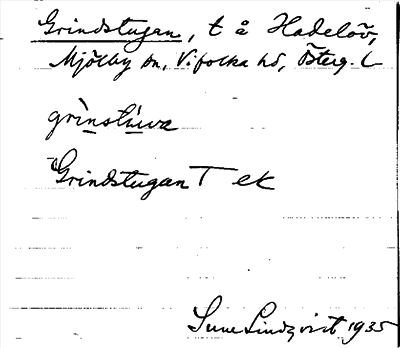 Grindstugan, t å Hadelöv,
Mjölby sn, Vifolka hd, Österg. l
grìnstúwa
Grindstugan T ek
Sune Lindqvist 1935